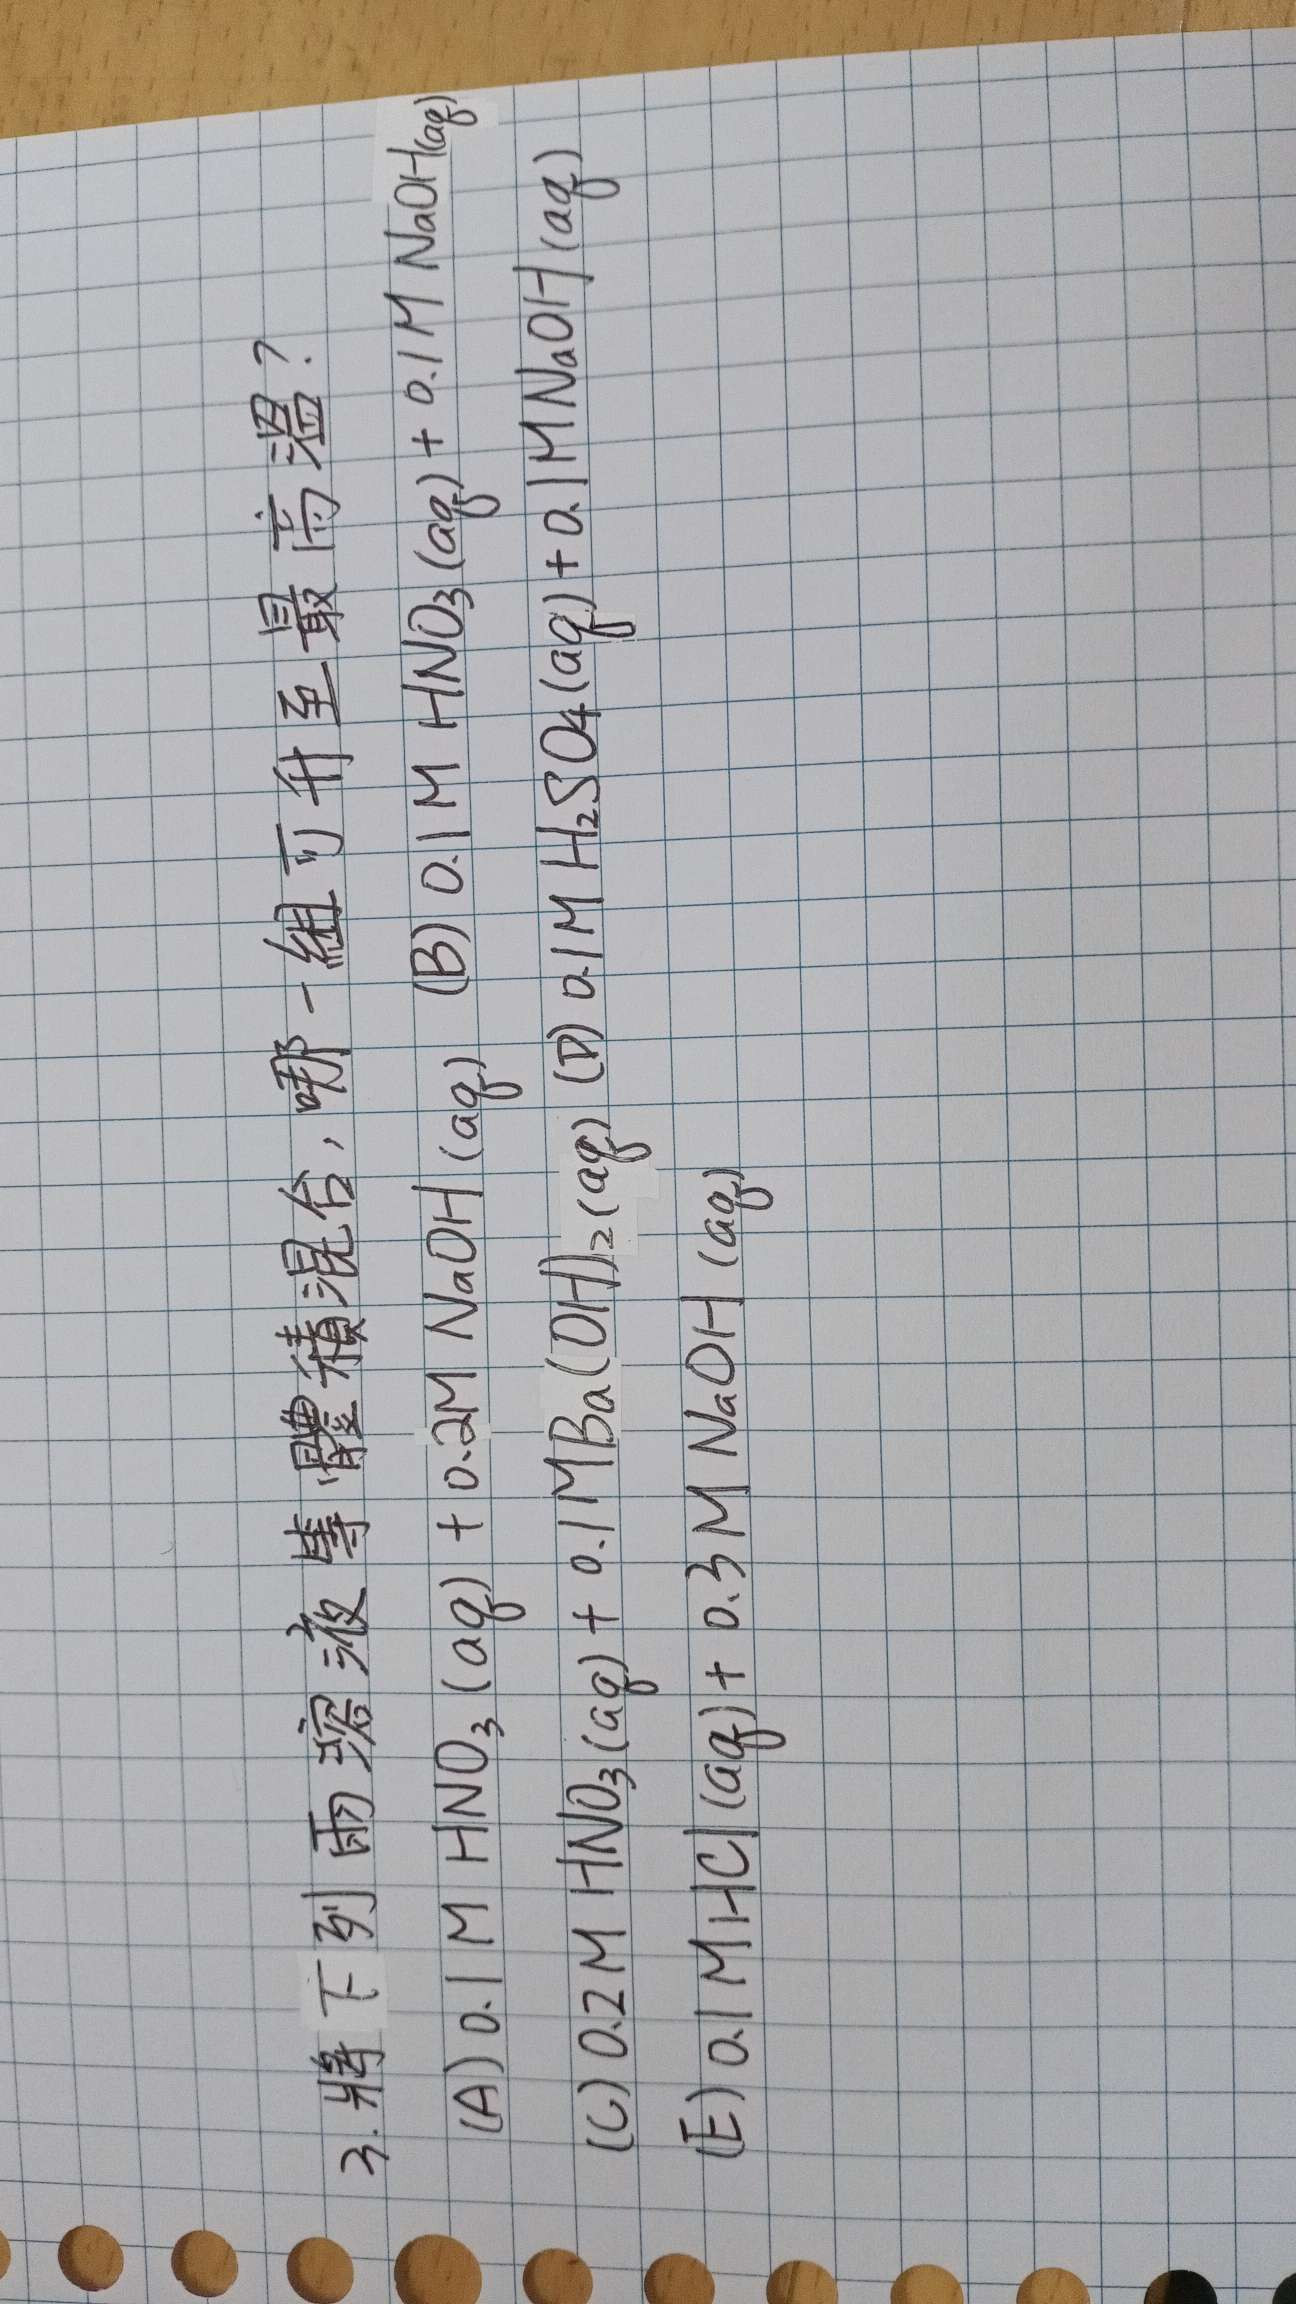 3.將下列兩溶液等體積混合,哪一組可升至最高溫?
(A) 0.1M HNO₃(aq) + 0.2M NaOH(aq) (B) 0.1M HNO₃(aq) + 0.1M NaOH(aq)
(C) 0.2M HNO₃(aq) + 0.1M Ba(OH)₂(aq) (D) 0.1M H₂SO₄(aq) + 0.1M NaOH(aq)
(E) 0.1M HCl(aq) + 0.3M NaOH(aq)